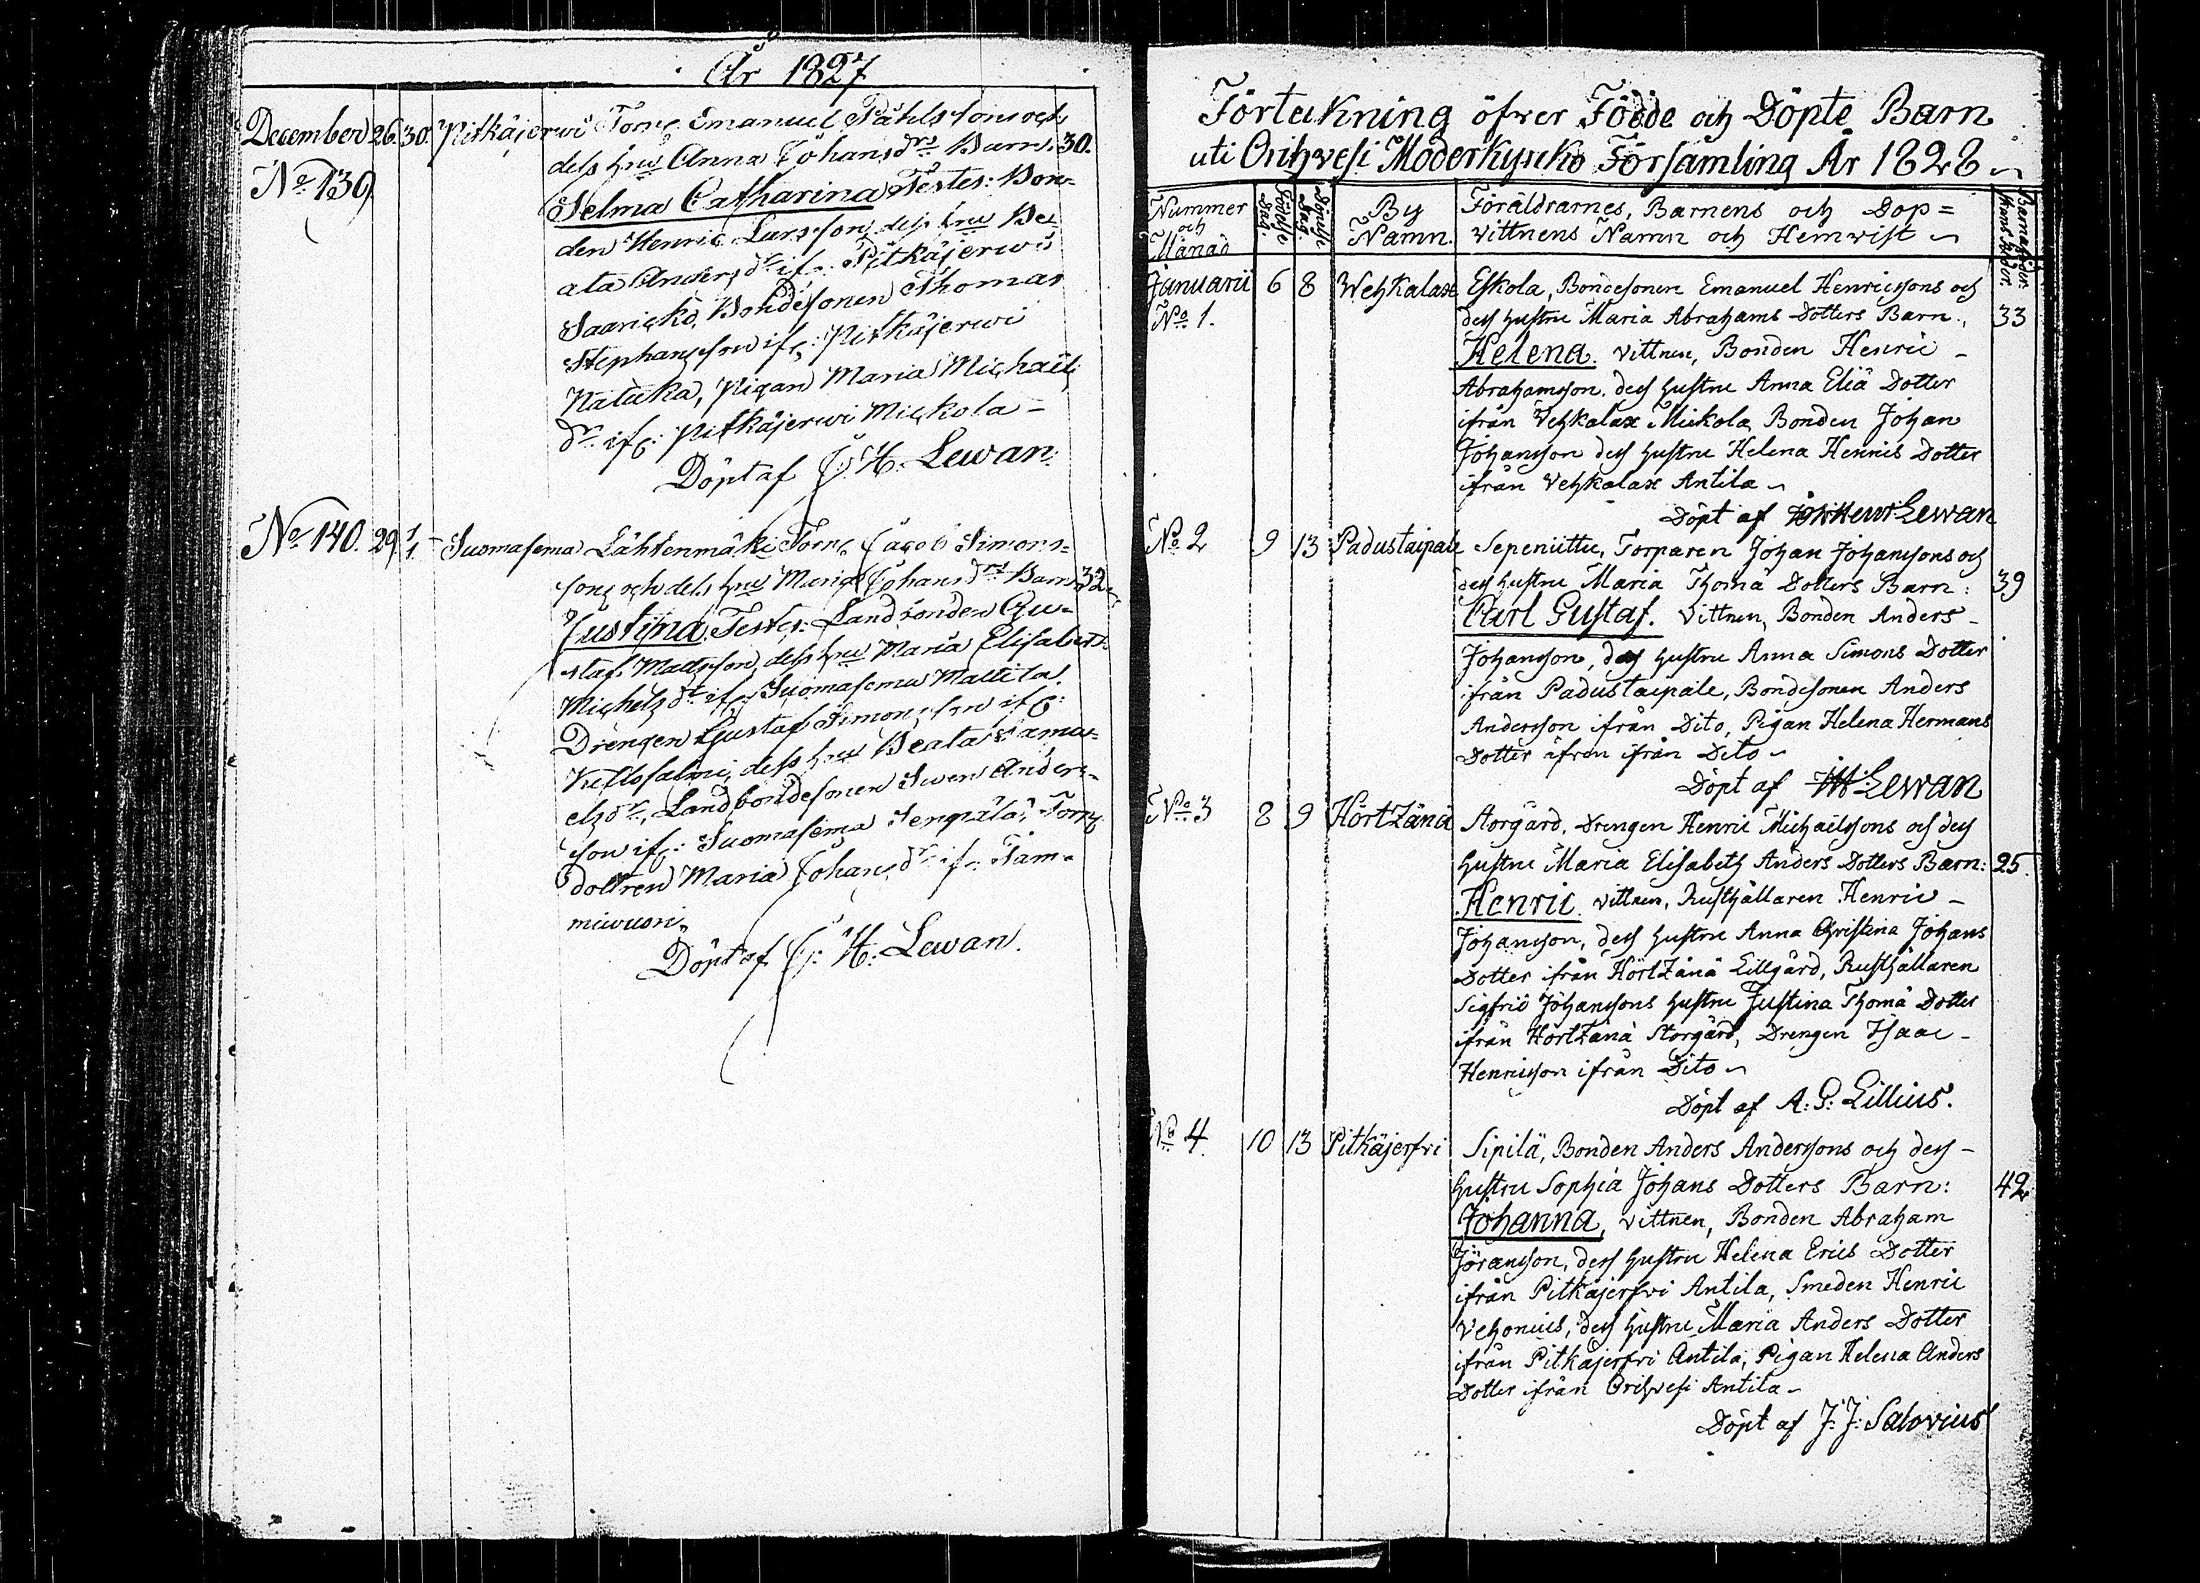 År 1827
December 26. 30. Pitkäjerwi Torp. Emanuel Påhlssons och
No 139. dess hru Anna Johansdrs Barn. 30.
Selma Catharina Testes: Bon-
den Henric Larsson, dess hru Be-
ata Andersdr ifr: Pitkäjerwi
Saaricko, Bondesonen Thomas
Stephansson ifr: Pitkäjerwi
Nataka, Pigan Maria Michaels
dr ifr: Pitkäjerwi Mickola -
Döpt af J: H: Lewan:
No 140. 29. 1/1 Suomasema Lähtenmäki Torp. Jacob Simons-
sons och dess hru Maria Johansdrs Barn 32
Justina. Testes: Landbonden Gu-
staf Mattsson, dess hru Maria Elisabeth
Michelsdr ifr: Suomasema Mattila.
Drengen Gustaf Simonsson ifr:
dess hru Beata Samu-
elsdr, Landbondesonen Swen Anders-
son ifr: Suomasema Torp-
dottren Maria Johansdr ifr: Tam-
miwuori,
Döpt af J: H: Lewan.
Förteckning öfwer Födde och Döpte Barn
uti Orihvesi Moderkyrko Församling År 1828
Nummer och Månad Födelse Dag. Döpelse Dag. By Namn. Föräldrarnes, Barnens och Dop=
vittnens Namn och Hemvist Barnaföder-
skans ålder.
Januarii 6 8 Wehkalax Eskola, Bondesonen Emanuel Henricssons och
No 1. dess hustru Maria Abrahams Dotters Barn., 33
Helena. vittnen, Bonden Henric -
Abrahamsson, dess hustru Anna Eliä Dotter
ifrån Vehkalax Mickola, Bonden Johan
Johansson dess hustru Helena Henrics Dotter
ifrån Vehkalax Antila
Döpt af Lewan
No 2 9 13 Padustaipale Sepeniittu, Torparen Johan Johanssons och
dess hustru Maria Thomä Dotters Barn: 39
Carl Gustaf. vittnen, Bonden Anders -
Johansson, dess hustru Anna Simons Dotter
ifrån Padustaipale, Bondesonen Anders
Andersson ifrån Dito, Pigan Helena Hermans
Dotter äfven ifrån Dito
Döpt af JH Lewan
No 3 8 9 Hörtzänä Storgård, Drengen Henric Michaelssons och dess
hustru Maria Elisabeth Anders Dotters Barn: 25.
Henric. vittnen, Rusthållaren Henric -
Johansson, dess hustru Anna Christina Johans
Dotter ifrån Hörtzänä Lillgård, Rusthållaren
Sigfrid Johanssons hustru Justina Thomä Dotter
ifrån Hörtzänä Storgård, Drengen Isaac -
Henricsson ifrån Dito
Döpt af A: G: Lillius.
No 4. 10 13 Pitkäjerfvi Sipilä, Bonden Anders Anderssons och dess -
hustru Sophia Johans Dotters Barn: 42
Johanna, vittnen, Bonden Abraham
Jöransson, dess hustru Helena Erics Dotter
ifrån Pitkäjerfvi Antila, Smeden Henric
Vehonius, dess hustru Maria Anders Dotter
ifrån Pitkäjerfvi Antila, Pigan Helena Anders
Dotter ifrån Orihvesi Antila -
Döpt af J: J: Salovius